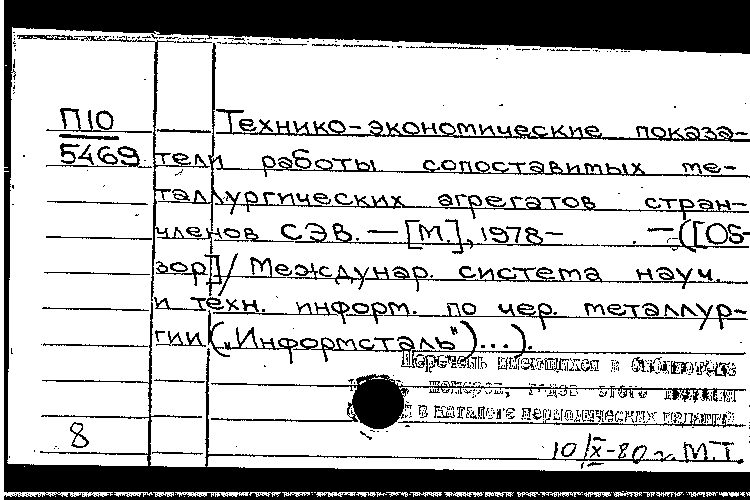 П10
5469
Технико-экономические показа-
тели работы сопоставимых ме-
таллургических агрегатов стран-
членов СЭВ. — [М.], 1978- . — ([Об-
зор] / Междунар. система науч.
и техн. информ. по чер. металлур-
гии („Информсталь")...).
Перечень имеющихся в библиотеке
номеров, годов этого издания
в каталоге периодических изданий
8
10/IX-80 г. М.Т.